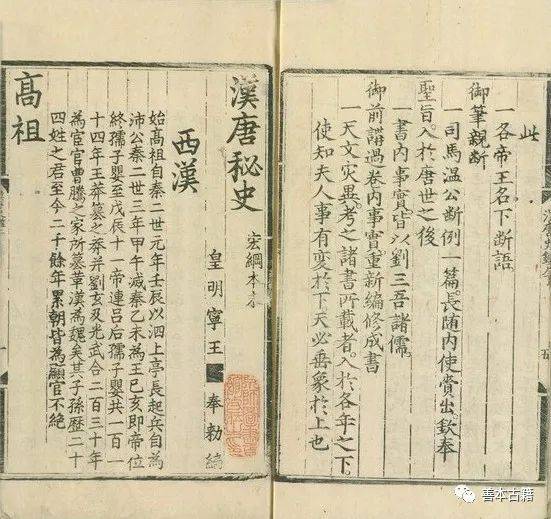 此
一各帝王名下斷語
御筆親斷
一司馬溫公斷例一篇長隨內使賫出欽奉
聖旨入於唐世之後
一書內事實皆以劉三吾諸儒
御前講過卷內事實重新編修成書
一天文灾異考之諸書所載者入於各年之下
使知夫人事有變於下天必垂象於上也
漢唐秘史
宏綱本末
皇明寧王 奉勅編
西漢
始高祖自秦二世元年壬辰以泗上亭長起兵自為
沛公秦二世三年甲午滅秦乙未為王己亥即帝位
終孺子嬰至戊辰十一帝連呂后孺子嬰共一百一
十四年王莽簒之莽并劉玄及光武合二百三十年
為宦官曹騰之家所簒革漢為魏矣其子孫歷二十
四姓之君至今二千餘年累朝皆為顯官不絕
高祖
善本古籍